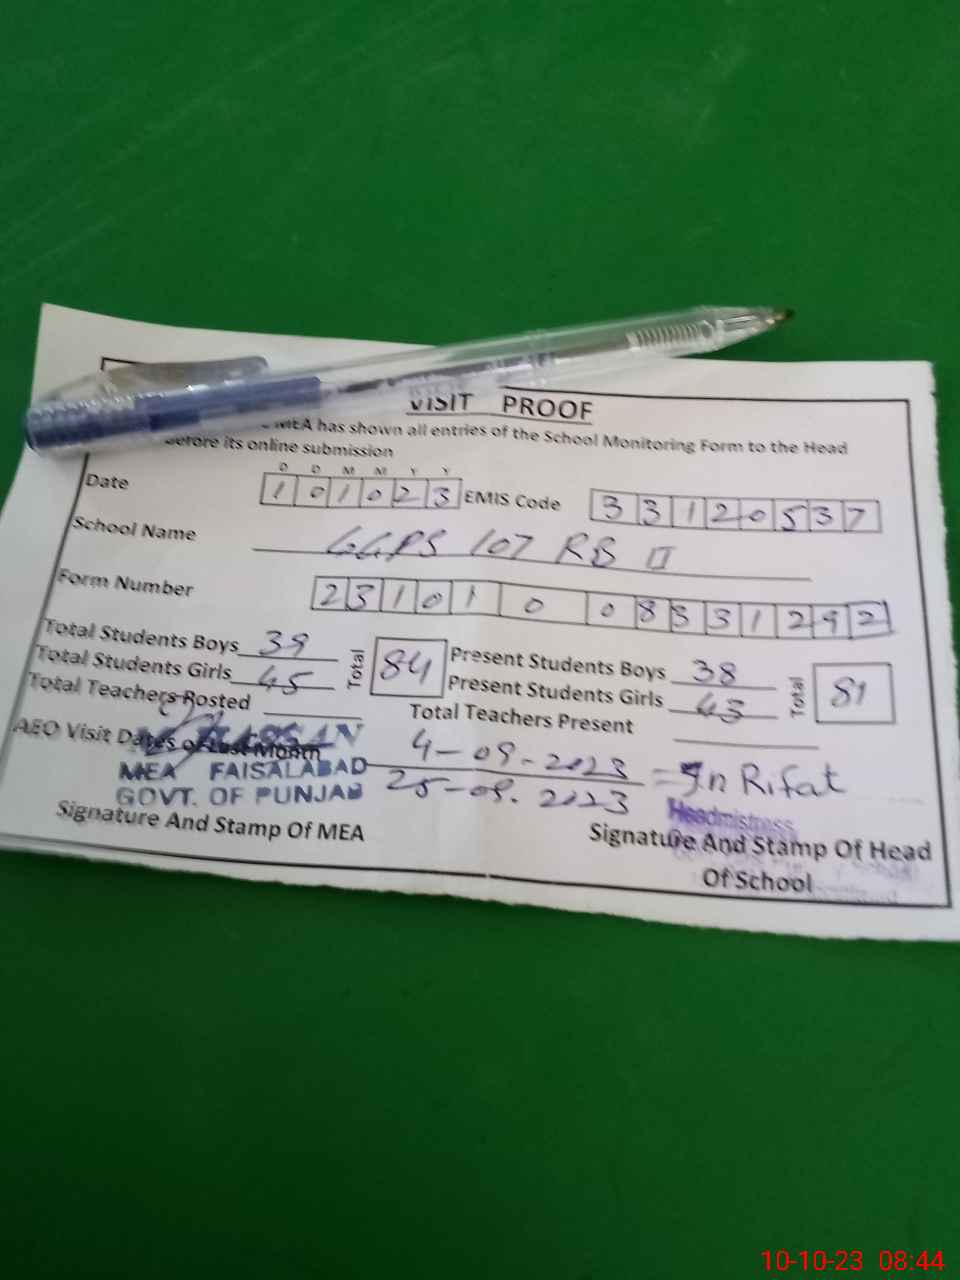 VISIT PROOF
MEA has shown all entries of the School Monitoring Form to the Head
before its online submission
D D M M Y Y
Date 1 0 1 0 2 3 EMIS Code 3 3 1 2 0 5 3 7
School Name GGPS 107 RB II
Form Number 2 3 1 0 1 0 0 8 3 3 1 2 9 2
Total Students Boys 39 Total 84 Present Students Boys 38 Total 81
Total Students Girls 45 Present Students Girls 43
Total Teachers Posted Total Teachers Present
AEO Visit Dates of Last Month 4-09-2023
25-09.2023 Rifat
HASSAN
MEA FAISALABAD
GOVT. OF PUNJAB
Headmistress
Signature And Stamp Of MEA Signature And Stamp Of Head
Of School
10-10-23 08:44